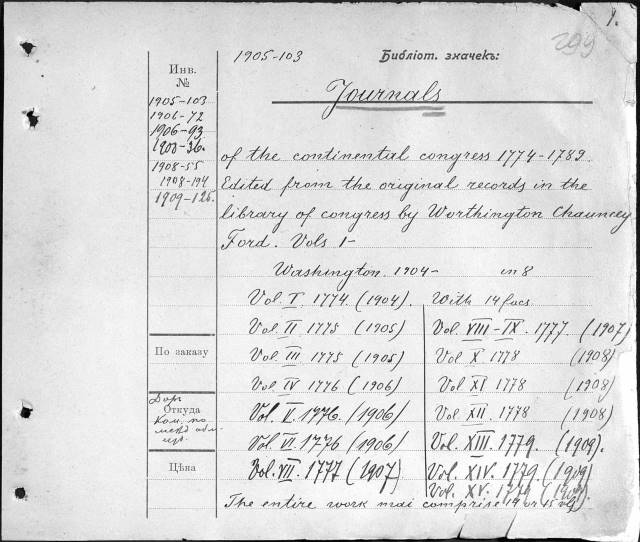 1.
299
1905-103 Библіот. значекъ:
Инв.
№
1905-103
1906-72
1906-93
1908-55
1908-194
1909-126.
Journals
of the continental congress 1774-1789.
Edited from the original records in the
library of congress by Worthington Chauncey
Ford. Vols 1-
Washington. 1904- in 8
Vol. I 1774 (1904). With 14 facs
Vol. II 1775 (1905)
Vol. III 1775 (1905)
Vol. IV 1776 (1906)
Vol. V. 1776. (1906)
Vol. VI. 1776 (1906)
Vol. VII. 1777 (1907)
Vol. VIII-IX. 1777. (1907)
Vol. X. 1778 (1908)
Vol. XI 1778 (1908)
Vol. XII. 1778 (1908)
Vol. XIII. 1779. (1909).
Vol. XIV. 1779. (1909)
Vol. XV. 1779 (1909)
The entire work mai comprise 14 or 15 vol
По заказу
Даръ
Откуда
Ком. по
межд. обм.
изд.
Цѣна